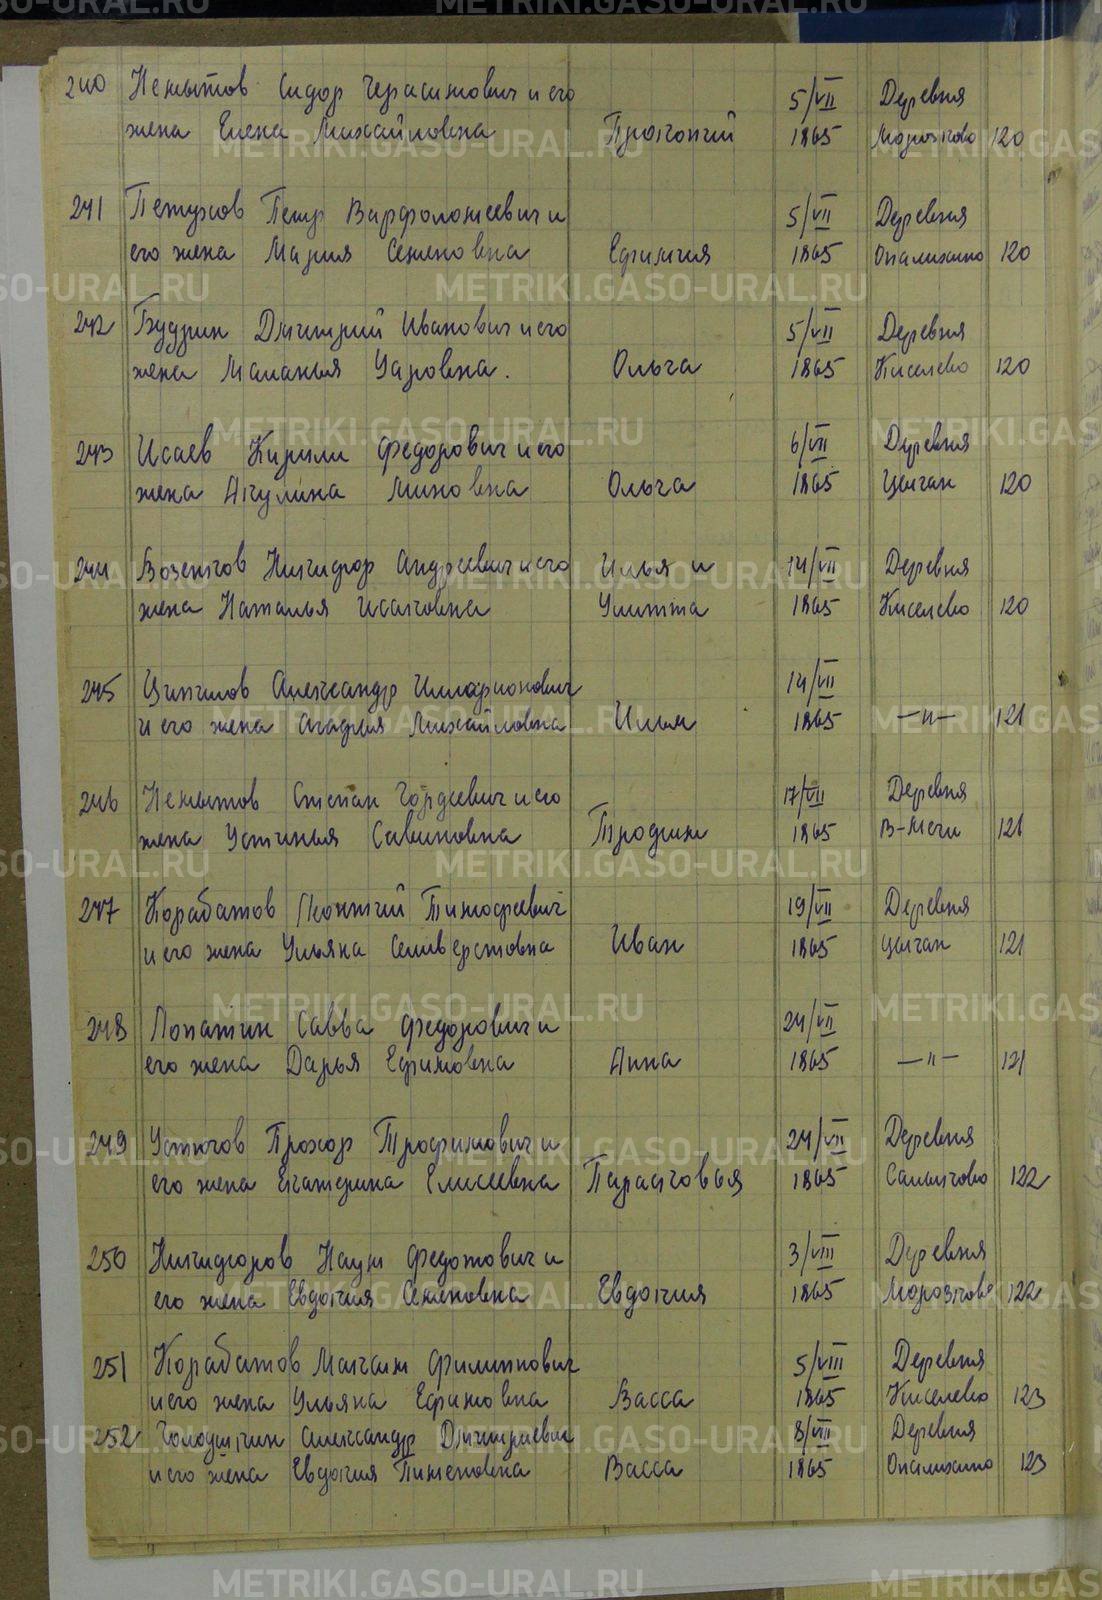 240 Немытов Сидор Герасимович и его
жена Елена Михайловна Прокопий 5/VII 1865 Деревня Морозково 120
241 Петухов Петр Варфоломеевич и
его жена Мария Семеновна Ефимия 5/VII 1865 Деревня Опалихино 120
242 Будрин Дмитрий Иванович и его
жена Маланья Уаровна. Ольга 5/VII 1865 Деревня Киселево 120
243 Исаев Кирилл Федорович и его
жена Акулина Миновна Ольга 6/VII 1865 Деревня Цыган 120
244 Никифор Андреевич и его
жена Наталья Исаковна Илья и Улитта 14/VII 1865 Деревня Киселево 120
245 Александр Илларионович
и его жена Агафия Михайловна Илья 14/VII 1865 —"— 121
246 Немытов Степан Гордеевич и его
жена Устинья Савиновна Трофим 17/VII 1865 Деревня 121
247 Корабатов Леонтий Тимофеевич
и его жена Ульяна Селиверстовна Иван 19/VII 1865 Деревня Цыган 121
248 Лопатин Савва Федорович и
его жена Дарья Ефимовна Анна 24/VII 1865 —"— 121
249 Устюгов Прохор Трофимович и
его жена Екатерина Елисеевна Парасковья 24/VII 1865 Деревня 122
250 Никифоров Наум Федотович и
его жена Евдокия Семеновна Евдокия 3/VIII 1865 Деревня Морозково 122
251 Корабатов Максим Филиппович
и его жена Ульяна Ефимовна Васса 5/VIII 1865 Деревня Киселево 123
252 Голодухин Александр Дмитриевич
и его жена Евдокия Пименовна Васса 8/VIII 1865 Деревня Опалихино 123
METRIKI.GASO-URAL.RU